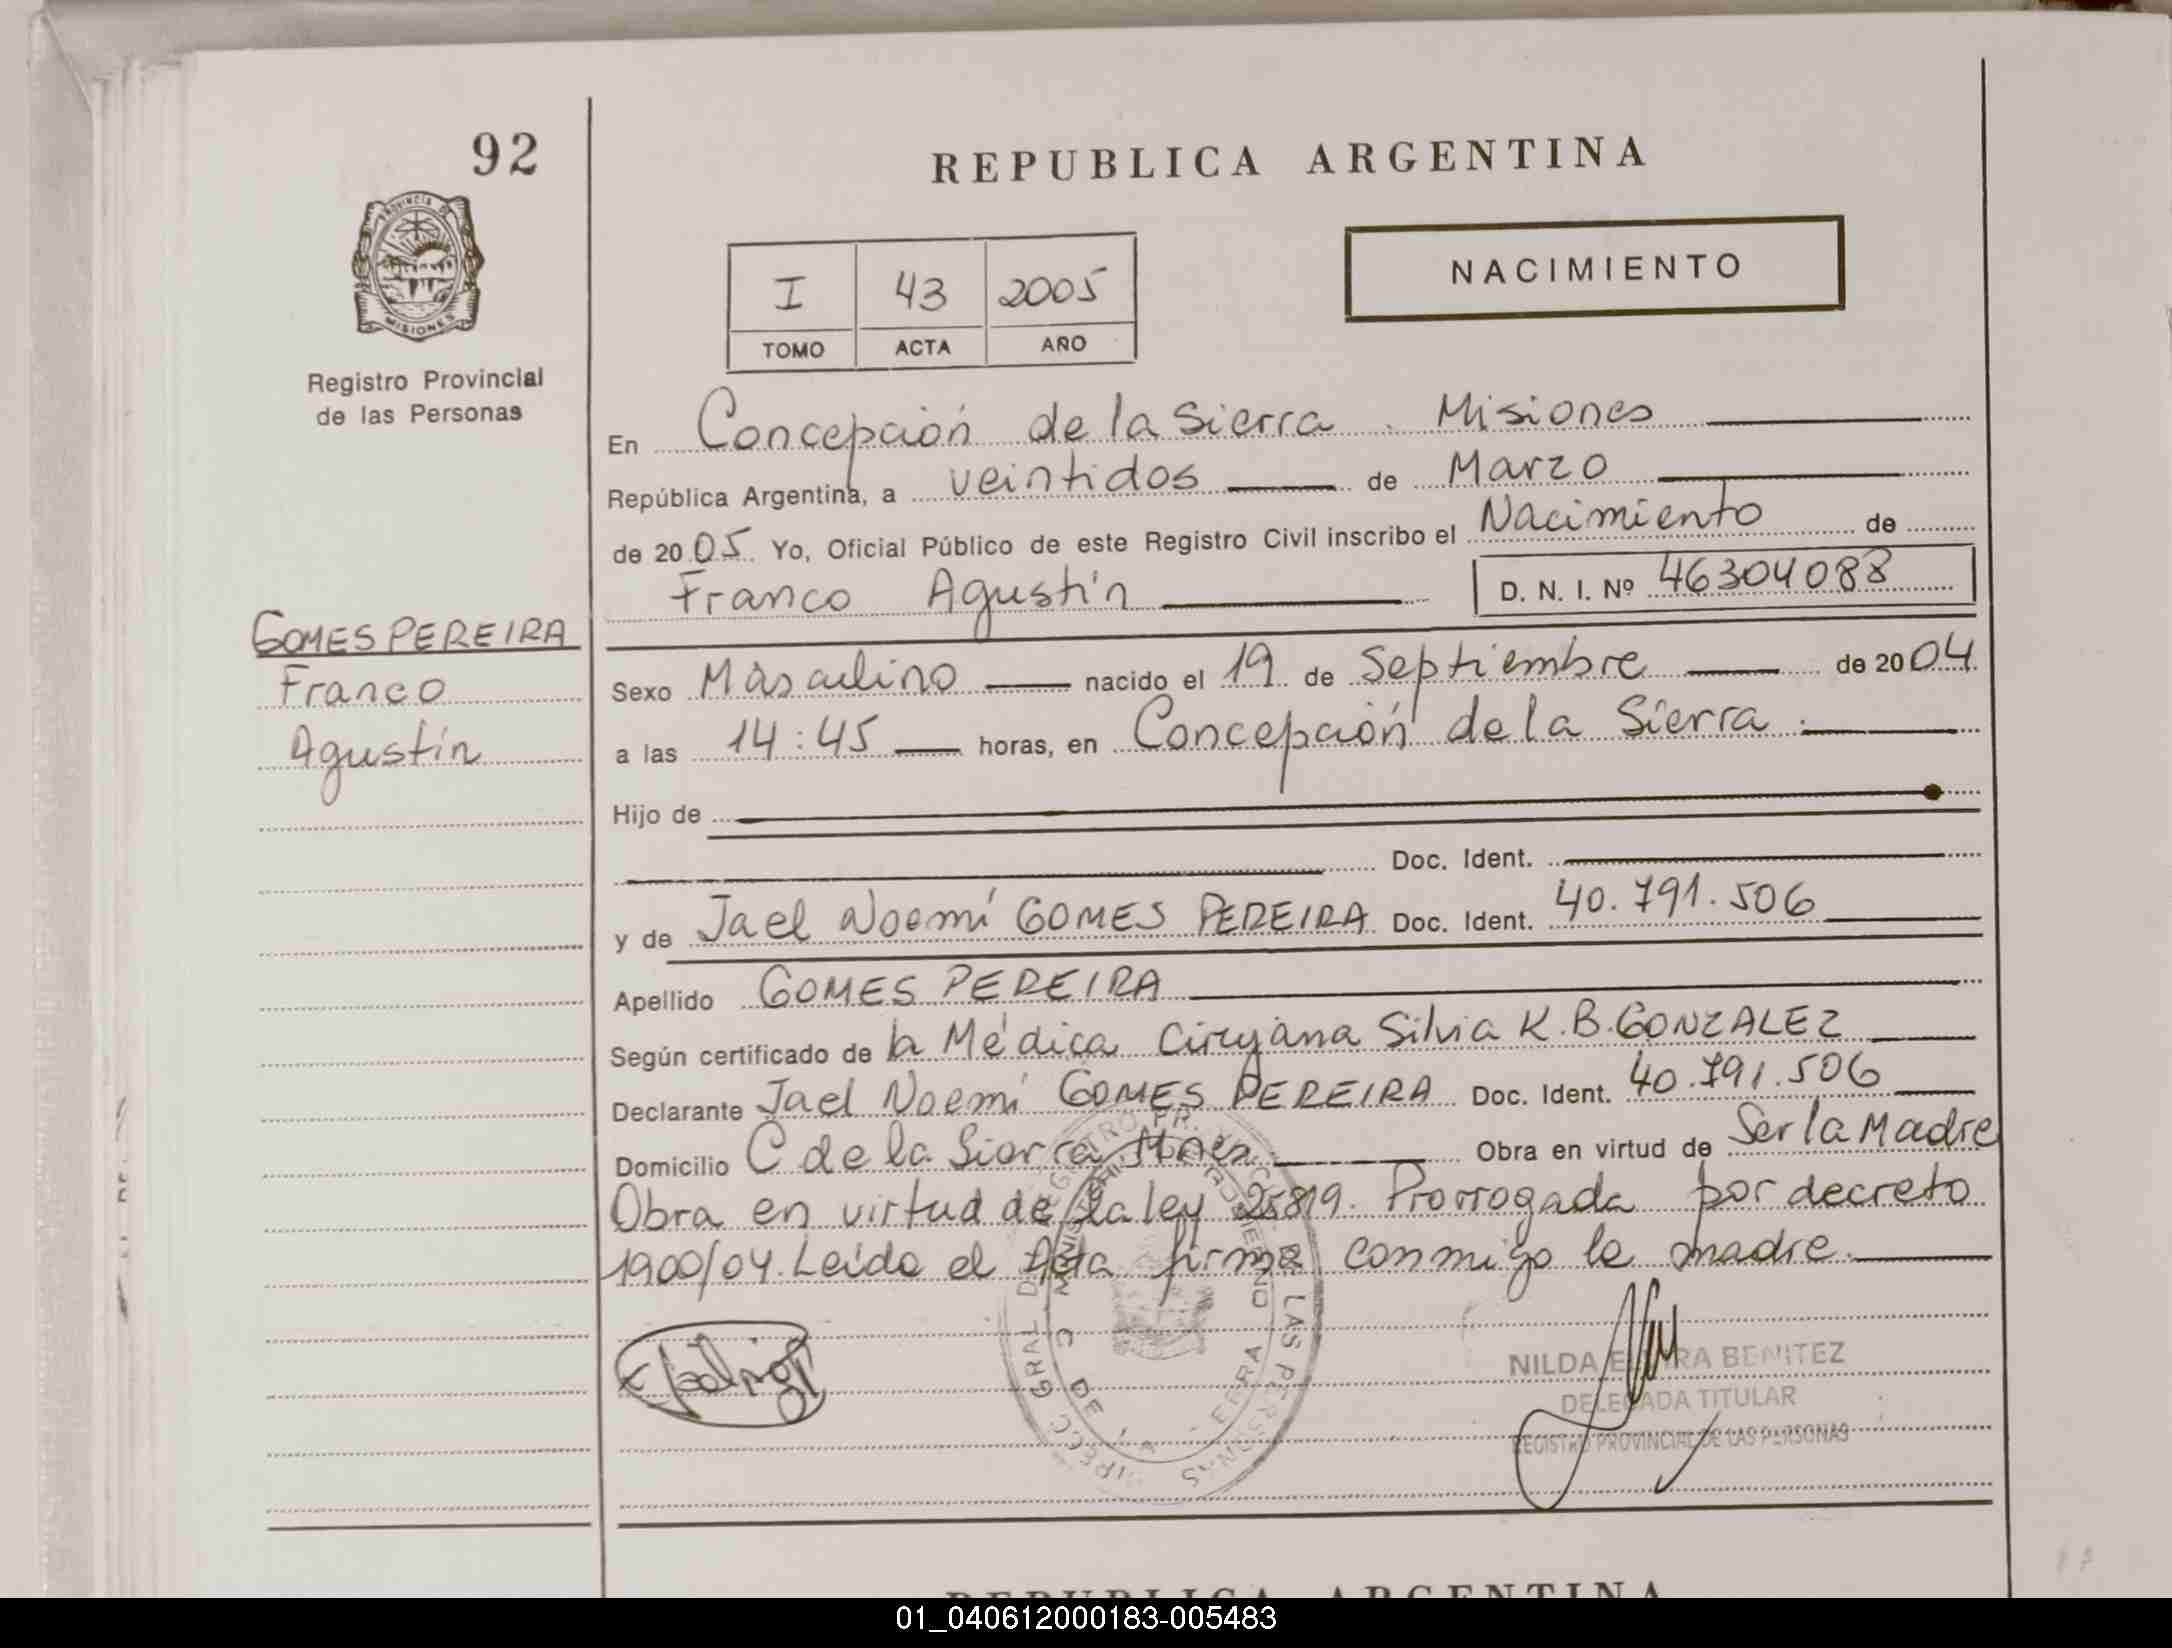 92
REPUBLICA ARGENTINA
PROVINCIA DE
MISIONES
Registro Provincial
de las Personas
I 43 2005
TOMO ACTA AÑO
NACIMIENTO
En Concepción de la Sierra. Misiones
República Argentina, a veintidos de Marzo
de 2005 Yo, Oficial Público de este Registro Civil inscribo el Nacimiento de
Franco Agustín D. N. I. Nº 46304088
GOMES PEREIRA
Franco
Agustín
Sexo Masculino nacido el 19 de Septiembre de 2004
a las 14:45 horas, en Concepción de la Sierra.
Hijo de
Doc. Ident.
y de Jael Noemí GOMES PEREIRA Doc. Ident. 40.791.506
Apellido GOMES PEREIRA
Según certificado de la Médica Cirujana Silvia K.B.GONZALEZ
Declarante Jael Noemí GOMES PEREIRA Doc. Ident. 40.791.506
Domicilio C de la Sierra Mnes Obra en virtud de Ser la Madre
Obra en virtud de la ley 25819. Prorrogada por decreto
1900/04. Leída el Acta firma conmigo la madre.
NILDA BENITEZ
DELEGADA TITULAR
REGISTRO PROVINCIAL DE LAS PERSONAS
REPUBLICA ARGENTINA
01_040612000183-005483